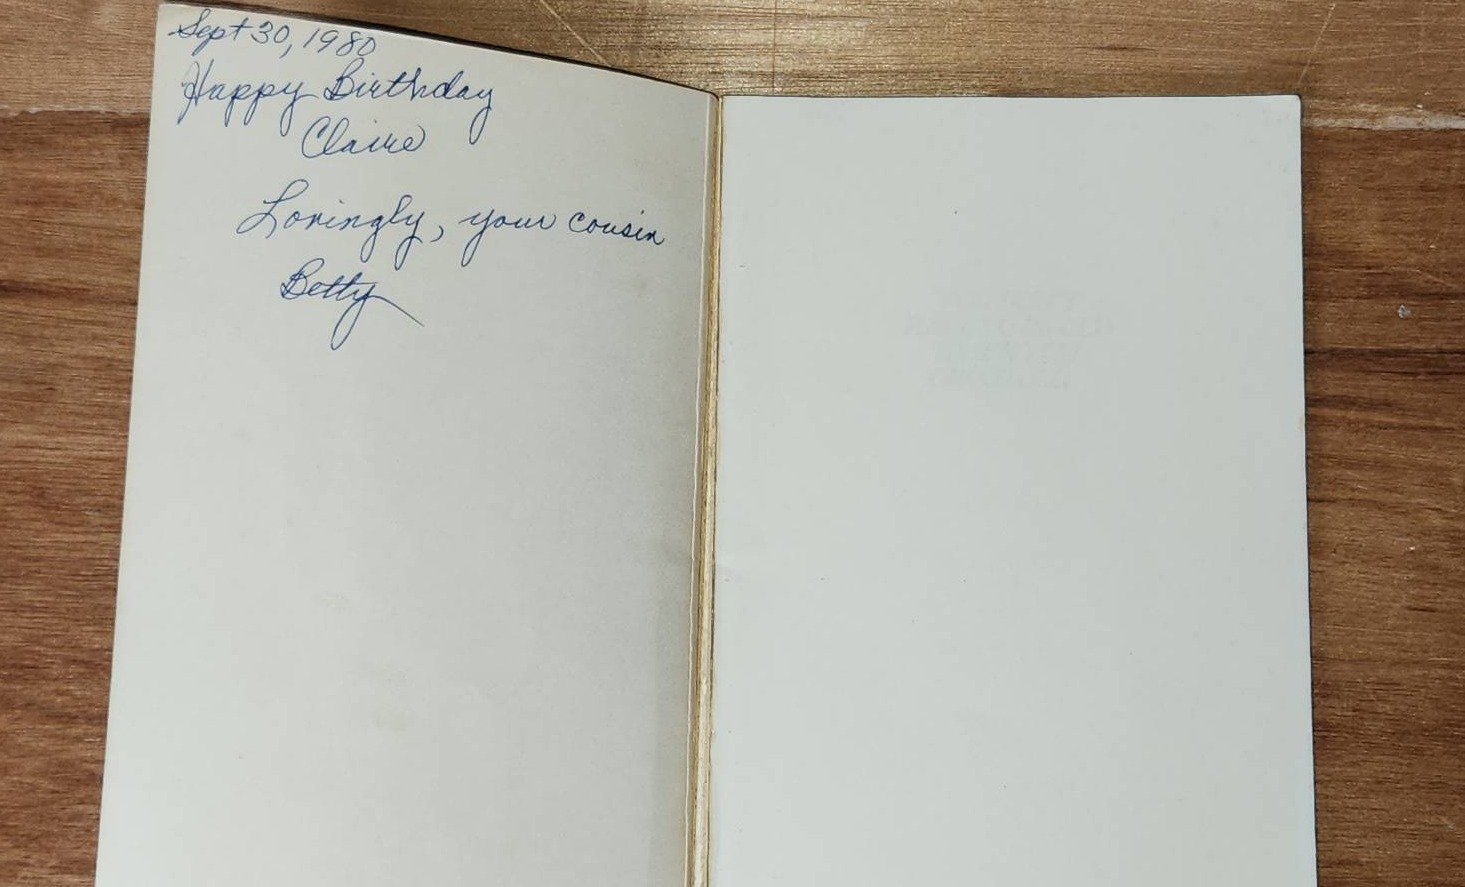 Sept 30, 1980
Happy Birthday
Claire
Lovingly, your cousin
Betty